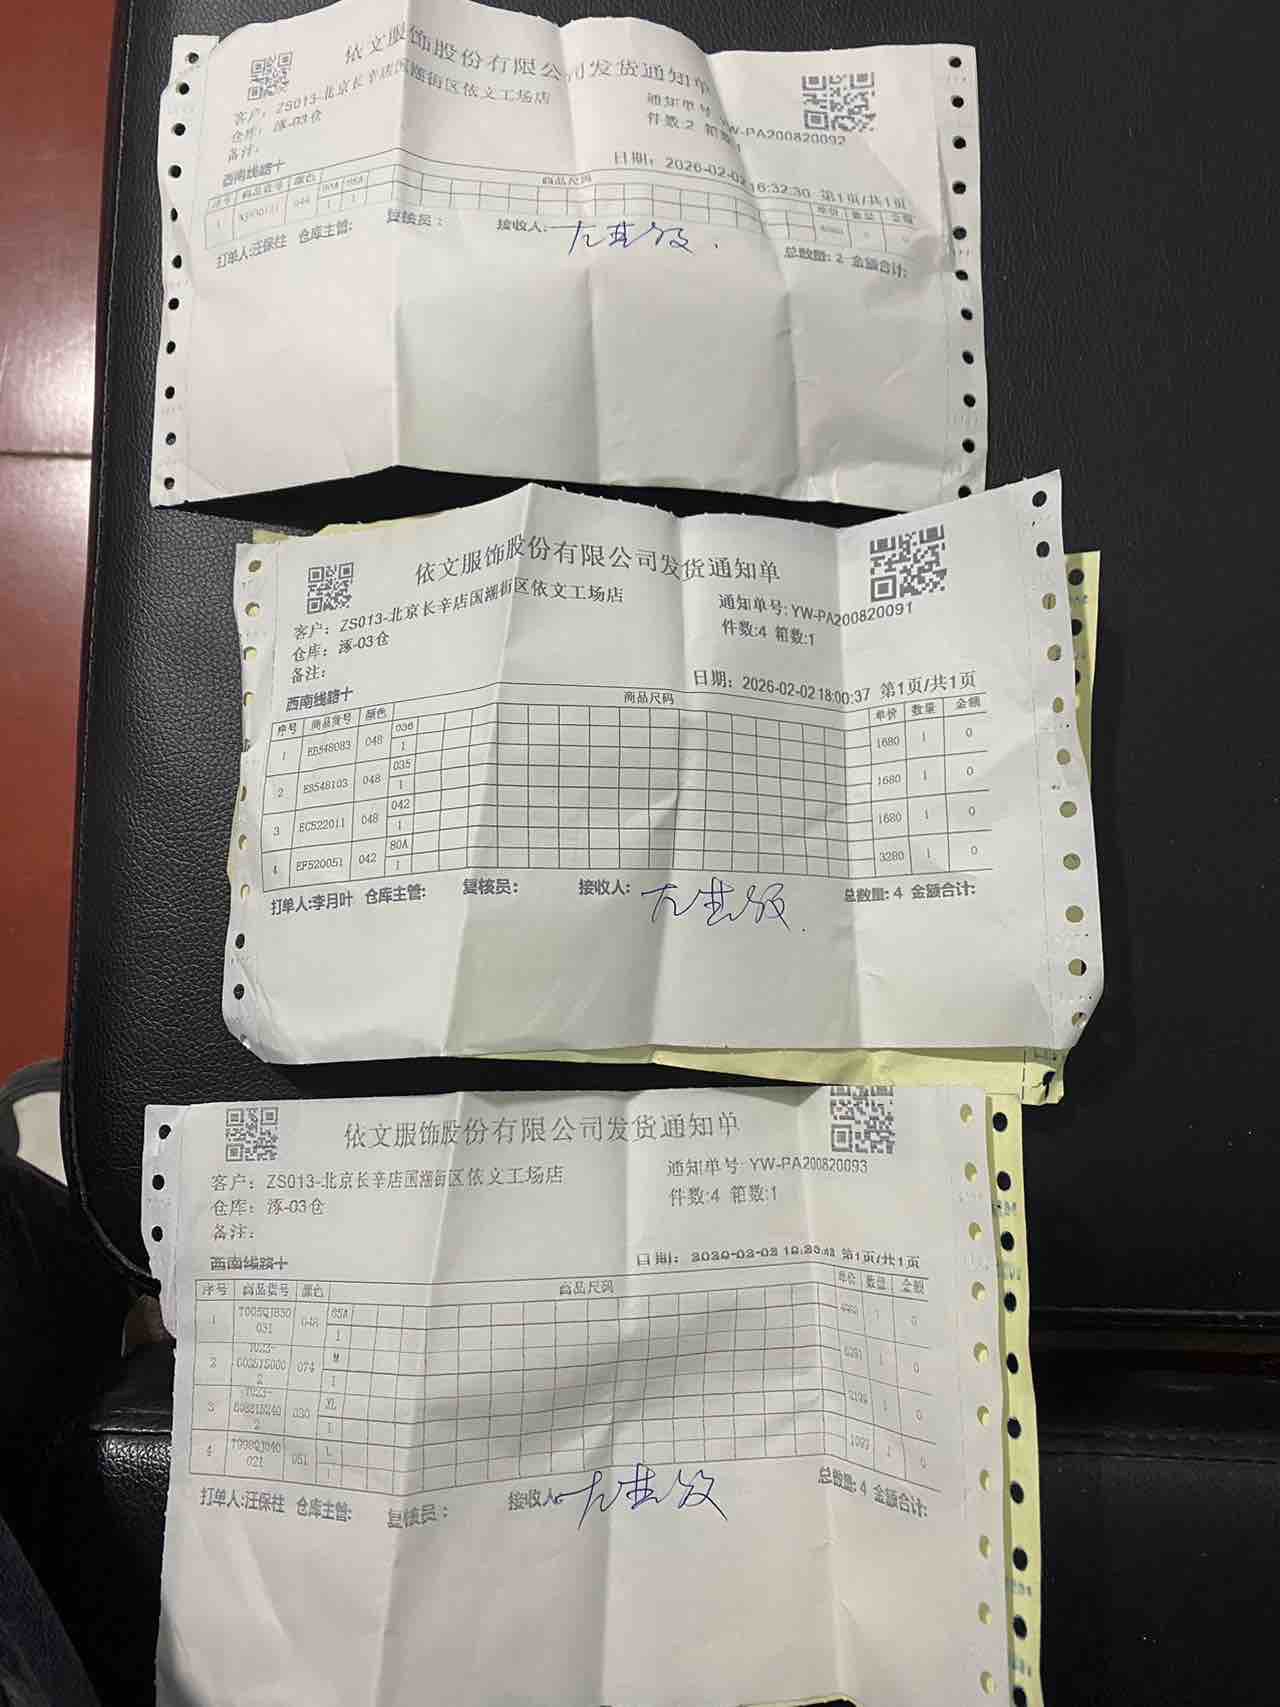 依文服饰股份有限公司发货通知单
客户：ZS013-北京长辛店国潮街区依文工场店
通知单号：YW-PA200820092
仓库：涿-03仓
件数:2 箱数:1
备注：
西南线路十
日期：2026-02-02 16:32:30 第1页/共1页
序号 商品货号 颜色 商品尺码 单价 数量 金额
1
1 1
打单人:汪保柱 仓库主管: 复核员： 接收人: 总数量: 2 金额合计:
依文服饰股份有限公司发货通知单
客户：ZS013-北京长辛店国潮街区依文工场店
通知单号: YW-PA200820091
仓库：涿-03仓
件数:4 箱数:1
备注：
西南线路十
日期：2026-02-02 18:00:37 第1页/共1页
序号 商品货号 颜色 商品尺码 单价 数量 金额
1 EB548083 048 036 1680 1 0
1
2 ES548103 048 035 1680 1 0
1
3 EC522011 048 042 1680 1 0
1
4 EF520051 042 80A 3280 1 0
1
打单人:李月叶 仓库主管: 复核员： 接收人： 总数量: 4 金额合计:
依文服饰股份有限公司发货通知单
客户：ZS013-北京长辛店国潮街区依文工场店
通知单号: YW-PA200820093
仓库：涿-03仓
件数:4 箱数:1
备注：
西南线路十
日期： 第1页/共1页
序号 商品货号 颜色 商品尺码 单价 数量 金额
1 048 1 0
1
2 074 M 1 0
1
3 030 XL 1 0
1
4 051 L 1 0
1
打单人:汪保柱 仓库主管: 复核员： 接收人 总数量: 4 金额合计: